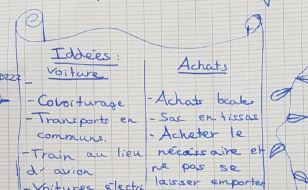 Iddées :
Voiture
- Covoiturage
- Transports en
communs.
- Train au lieu
d'avion
- Voitures électri
Achats
- Achats locale
- Sac en tissas
- Acheter le
nécessaire et
ne pas se
laisser emporter